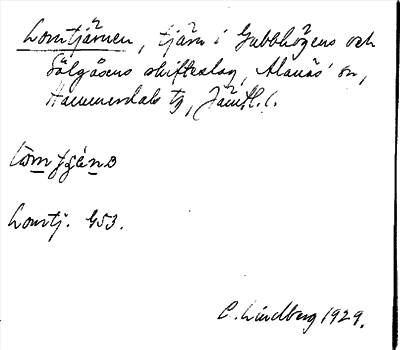 Lomtjärnen, tjärn i Gubbhögens och
Sölgåsens skifteslag, Alanäs sn,
Hammerdals tg, Jämtl. l.
lòmtjæ̀nɒ
Lomtj. G53.
C. Lindberg 1929.